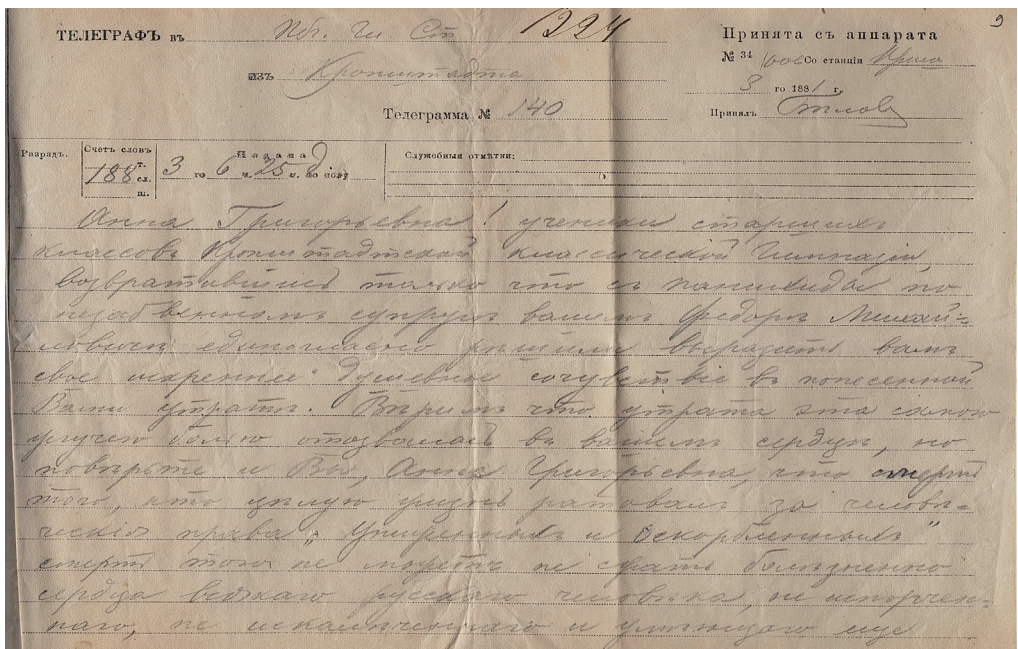 9
ТЕЛЕГРАФЪ въ Пбг. Гл. Ст 1224
Принята съ аппарата
№ 34 Со станціи
изъ Кронштадта
3 го 1881 г.
Телеграмма № 140
Принялъ
Разрядъ.
Счетъ словъ
Подана
Служебныя отмѣтки:
188 т. сл. ш.
3 го 6 ч. 25 м. по полу д
Анна Григорьевна! ученики старшихъ
классовъ Кронштадтской классической Гимназіи,
возвратившись только что съ панихиды по
незабвенномъ супругѣ вашемъ Федорѣ Михай=
ловичѣ единогласно рѣшили выразить вамъ
свое искреннее душевное сочувствіе въ понесенной
Вами утратѣ. Вѣримъ что утрата эта самою
жгучею болью отозвалась въ вашемъ сердцѣ, но
повѣрьте и Вы, Анна Григорьевна, что смерть
того, кто цѣлую жизнь ратовалъ за человѣ=
ческія права „Униженныхъ и Оскорбленныхъ"
смерть того не можетъ не сжать болѣзненно
сердца всякаго русскаго человѣка, не испорчен=
наго, не искалѣченнаго и умѣющаго еще